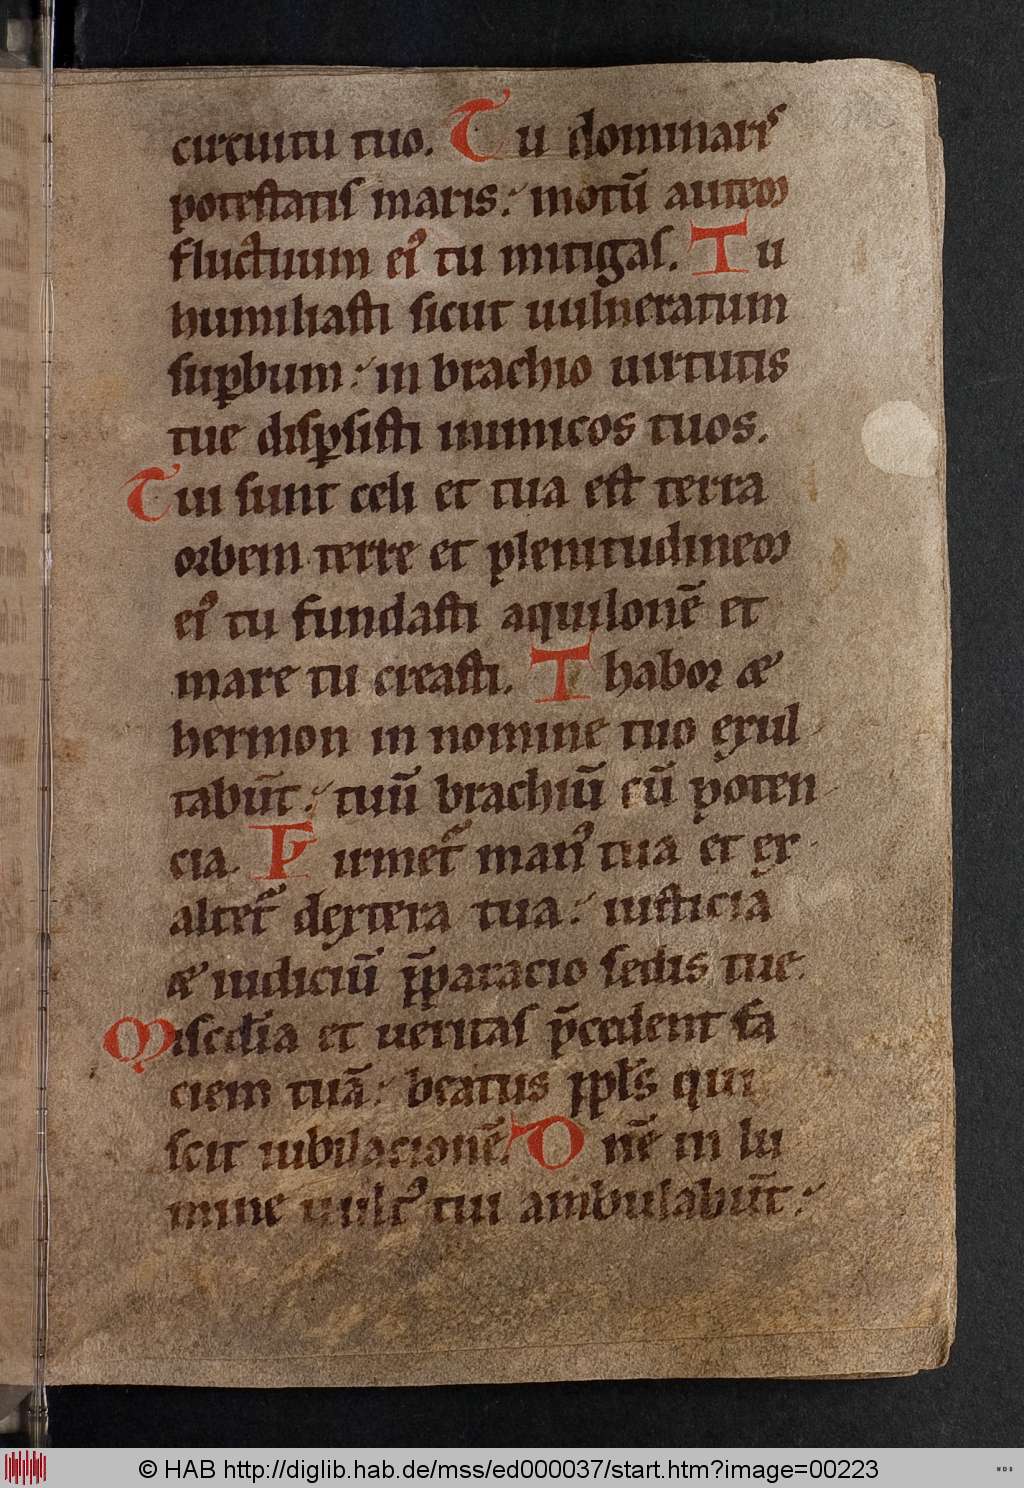 circuitu tuo. Tu dominaris
potestatis maris: motū autem
fluctuum ei᷒ tu mitigas. Tu
humiliasti sicut uulneratum
suꝑbum: in brachio uirtutis
tue disꝑsisti inimicos tuos.
Tui sunt celi et tua est terra
orbem terre et plenitudinem
ei᷒ tu fundasti aquilonē et
mare tu creasti. Thabor æ
hermon in nomine tuo exul
tabūt: tuū brachiū cū poten
cia. Firmet᷑ man᷒ tua et ex
altet᷑ dextera tua: iusticia
æ iudiciū p̄paracio sedis tue.
Misc̄dia et ueritas p̄cedent fa
ciem tuā: beatus ppl̄s qui
scit iubilacionē. Dn̄e in lu
mine uult᷒ tui ambulabūt:
© HAB http://diglib.hab.de/mss/ed000037/start.htm?image=00223